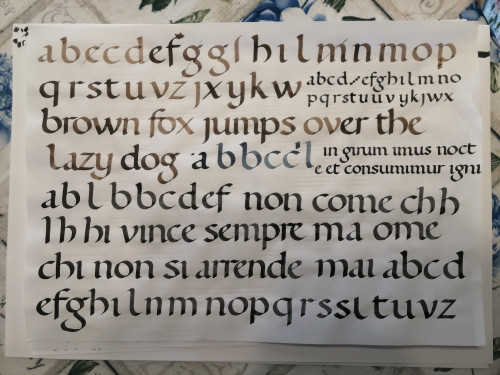 abeccdefggl hılmnmop
qrstuvz jxykw abcd efghılmno
pqrstuüvykjwx
brown fox jumps over the
lazy dog abbccl in girum imus noct
e et consumimur igni
ablbbcdef non come chh
lhhı vince sempre ma ome
chı non sı arrende maı abcd
efghılnmnopqrssltuvz